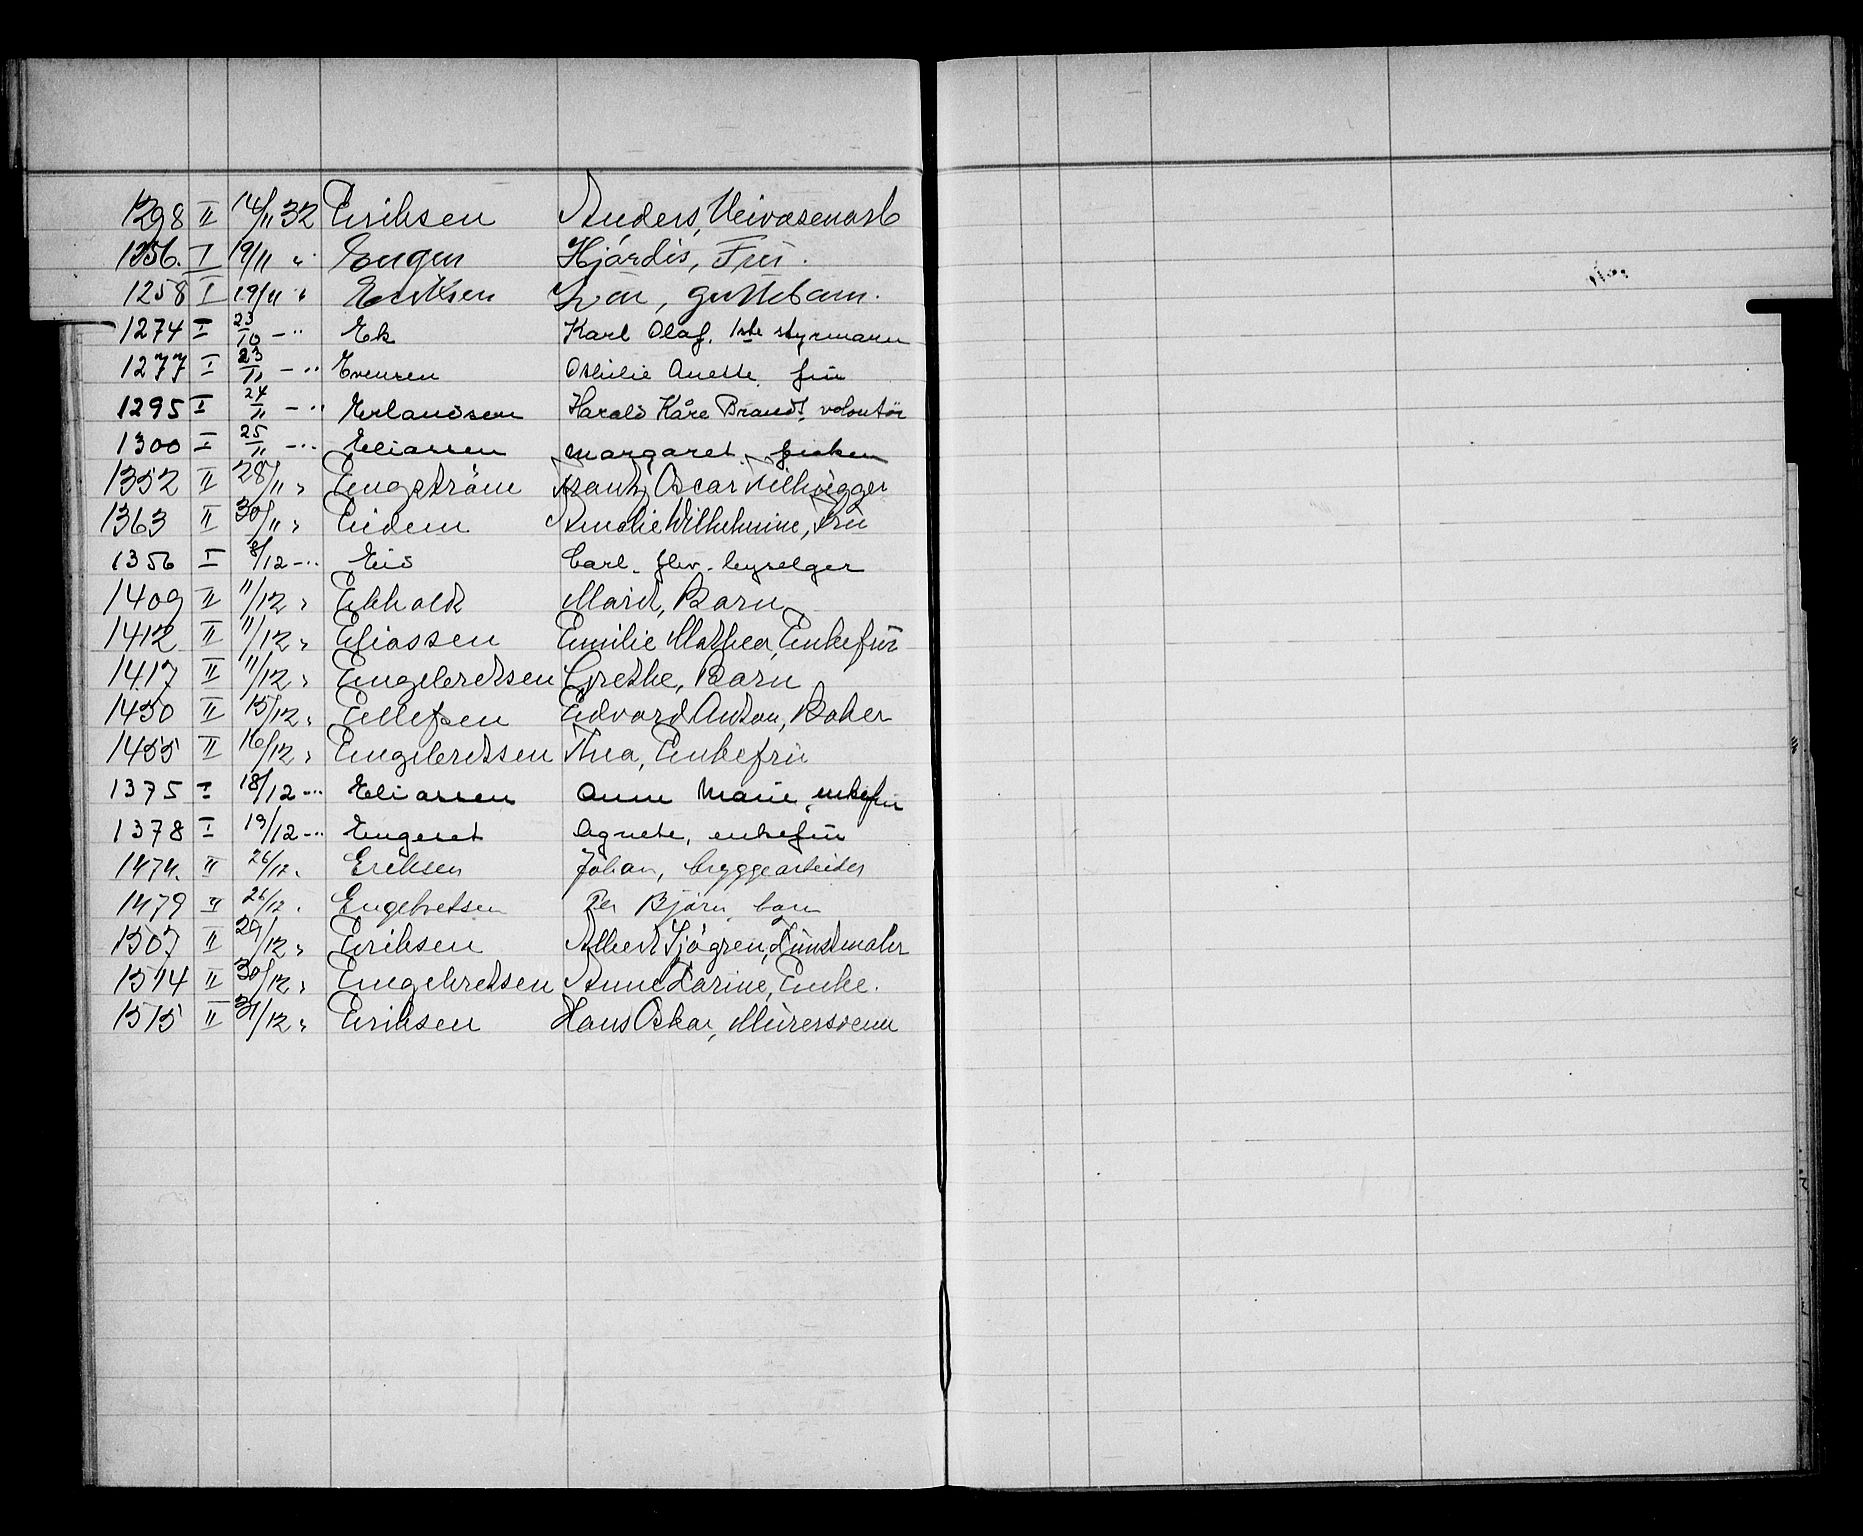 1298 II 14/11 32 Eriksen Anders, Veivæsenarb
1256. I 19/11 " Engen Hjørdis, Frü.
1258 I 19/11 " Eriksen Ivar, guttebarn.
1274 I 23/10 -" Ek Karl Olaf. 1ste styrmann
1277 I 23/11 -" Evensen Othilie Anette, frü
1295 I 24/11 -" Erlandsen Harald Kåre Brandt, volontör
1300 I 25/11 -" Eliassen Margaret, frøken
1352 II 28/11 " Engström Frantz Oscar
1363 II 30/11 " Eidem Amalie Wilhelmine, Frü
1356 I 8/12 -" Eid Carl. fhv. lysselger
1409 II 11/12 " Ekholdt Marit, Barn
1412 II 11/12 " Eliassen Emilie Mathea, Enkefrü
1417 II 11/12 " Engebretsen Grethe, Barn
1450 II 15/12 " Ellefsen Edvard Anton, Baker
1455 II 16/12 " Engebretsen Thea, Enkefrü
1375 I 18/12 -" Eliassen Anne Marie, enkefrü
1378 I 19/12 -" Engeset Agnete, enkefrü
1474. II 26/12. Eriksen Johan, bryggearbeider
1479 II 26/12. Engebretsen Per Bjørn, barn
1507 II 29/12 " Eriksen Albert Sjögren, Kunstmaler
1514 II 30/12 " Engebretsen Anne Karine, Enke.
1515 II 31/12 " Eriksen Hans Oskar, Mürersvenn